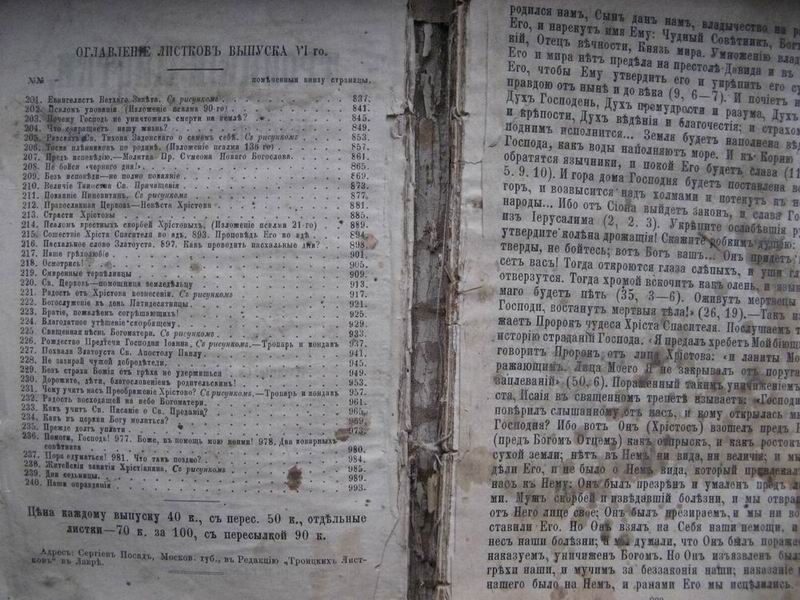 ОГЛАВЛЕНІЕ ЛИСТКОВЪ ВЫПУСКА VI-го.
№№ помѣченныя внизу страницы.
201. Евангелистъ Ветхаго Завѣта. Съ рисункомъ 837.
202. Псаломъ упованія (Изложеніе псалма 90-го) 841.
203. Почему Господь не уничтожилъ смерти на землѣ? 845.
204. Что сокращаетъ нашу жизнь? 849.
205. Тихона Задонскаго о самомъ себѣ. Съ рисункомъ 853.
206. Тоска плѣнниковъ по родинѣ. (Изложеніе псалма 136-го) 857.
207. Предъ исповѣдію.—Молитва Пр. Сумеона Новаго Богослова. 861.
208. Не бойся «чернаго дня!» 865.
209. Безъ исповѣди—не полно покаяніе 869.
210. Величіе Таинства Св. Причащенія 873.
211. Покаяніе Ниневитянъ. Съ рисункомъ 877.
212. Православная Церковь—Невѣста Христова 881.
213. Страсти Христовы 885.
214. Псаломъ крестныхъ скорбей Христовыхъ. (Изложеніе псалма 21-го) 889.
215. Сошествіе Христа Спасителя во адъ. 893. Проповѣдь Его во адѣ 894.
216. Пасхальное слово Златоуста. 897. Какъ проводить пасхальные дни? 898.
217. Наше грѣхолюбіе 901.
218. Осмотрись! 905.
219. Смиренные терпѣливцы 909.
220. Св. Церковь—помощница земледѣльцу 913.
221. Радость отъ Христова вознесенія. Съ рисункомъ 917.
222. Богослуженіе въ день Пятидесятницы 921.
223. Братіе, пожалѣемъ согрѣшающихъ! 925.
224. Благодатное утѣшеніе скорбящему 929.
225. Священная пѣснь Богоматери. Съ рисункомъ 933.
226. Рождество Предтечи Господня Іоанна. Съ рисункомъ.—Тропарь и кондакъ 937.
227. Похвала Златоуста Св. Апостолу Павлу 941.
228. Не зазирай чужой добродѣтели 945.
229. Безъ страха Божія отъ грѣха не удержаться 949.
230. Дорожите, дѣти, благословеніемъ родительскимъ! 953.
231. Чему учитъ насъ Преображеніе Христово? Съ рисункомъ.—Тропарь и кондакъ 957.
232. Радость восходящей на небо Богоматери 961.
233. Какъ учитъ Св. Писаніе о Св. Преданіи? 965.
234. Какъ въ церкви Богу молиться? 969.
235. Прежде долгъ уплати
236. Помоги, Господи! 977. Боже, въ помощь мою вонми! 978. Два коварныхъ
совѣтника 980.
237. Пора одуматься! 981. Что такъ поздно? 984.
238. Житейскія занятія Христіанина. Съ рисункомъ 985.
239. Дни седмицы 989.
240. Наши оправданія 993.
Цѣна каждому выпуску 40 к., съ перес. 50 к., отдѣльные
листки—70 к. за 100, съ пересылкой 90 к.
Адресъ: Сергіевъ Посадъ, Москов. губ., въ Редакцію „Троицкихъ Лист-
ковъ" въ Лаврѣ.
родился намъ, Сынъ данъ намъ, владычество на
Его, и нарекутъ имя Ему: Чудный Совѣтникъ,
Отецъ вѣчности, Князь мира. Умноженію
Его и мира нѣтъ предѣла на престолѣ Давида и въ
Его, чтобы Ему утвердить его и укрѣпить его
правдою отъ нынѣ и до вѣка (9, 6—7). И почіетъ на
Духъ Господень, Духъ премудрости и разума, Духъ
и крѣпости, Духъ вѣдѣнія и благочестія; и страхомъ
исполнится... Земля будетъ наполнена
Господа, какъ воды наполняютъ море. И къ Корню
обратятся язычники, и покой Его будетъ слава (11
5. 9. 10). И гора дома Господня будетъ поставлена во
горъ, и возвысится надъ холмами и потекутъ къ
народы... Ибо отъ Сіона выйдетъ законъ, и слава
изъ Іерусалима (2, 2. 3). Укрѣпите ослабѣвшія
утвердите колѣна дрожащія! Скажите робкимъ душою:
тверды, не бойтесь; вотъ Богъ вашъ... Онъ придетъ
сетъ васъ! Тогда откроются глаза слѣпыхъ, и уши
отверзутся. Тогда хромой вскочитъ какъ олень, и
маго будетъ пѣть (35, 3—6). Оживутъ мертвецы
Господи, востанутъ мертвыя тѣла!» (26, 19).—Такъ
жаетъ Пророкъ чудеса Христа Спасителя. Послушаемъ
исторію страданій Господа. «Я предалъ хребетъ Мой
говоритъ Пророкъ отъ лица Христова: «и ланиты Мои
ражающимъ. Лица Моего Я не закрывалъ отъ
(50, 6). Пораженный такимъ уничиженіемъ
ста, Исаія въ священномъ трепетѣ взываетъ: «Господи
повѣрилъ слышанному отъ насъ, и кому открылась
Господня? Ибо вотъ Онъ (Христосъ) взошелъ предъ
(предъ Богомъ Отцемъ) какъ отпрыскъ, и какъ ростокъ
сухой земли; нѣтъ въ Немъ ни вида, ни величія; и мы
дѣли Его, и не было въ Немъ вида, который
насъ къ Нему: Онъ былъ презрѣнъ и умаленъ предъ
ми. Мужъ скорбей и извѣдавшій болѣзни, и мы
отъ Него лице свое; Онъ былъ презираемъ, и мы ни во
ставили Его. Но Онъ взялъ на Себя наши немощи, и
несъ наши болѣзни; а мы думали, что Онъ былъ
наказуемъ, уничиженъ Богомъ. Но Онъ изъязвленъ
грѣхи наши, и мучимъ за беззаконія наши; наказаніе
нашего было на Немъ, и ранами Его мы исцѣлились.